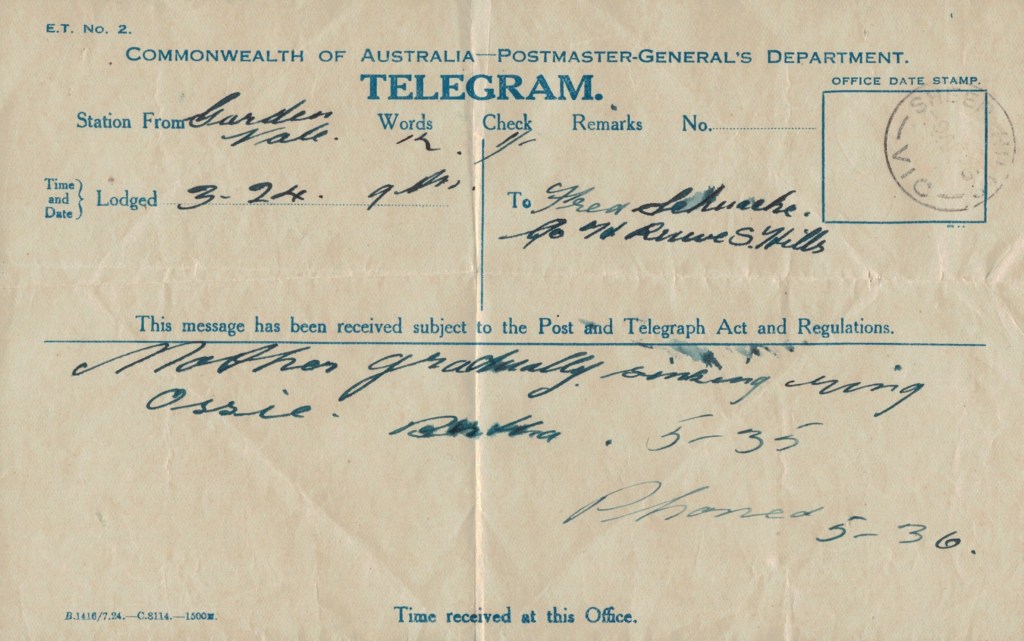 E.T. No. 2.
COMMONWEALTH OF AUSTRALIA—POSTMASTER-GENERAL'S DEPARTMENT.
TELEGRAM.
OFFICE DATE STAMP.
Station From Garden Vale. Words 12. Check 1/- Remarks No.
VIC
Time and Date } Lodged 3-24.
To Fred
c/o H S. Hills
This message has been received subject to the Post and Telegraph Act and Regulations.
Mother gradually sinking ring
Ossie.
Bertha. 5-35
Phoned 5-36.
B.1416/7.24.—C.8114.—1500M.
Time received at this Office.